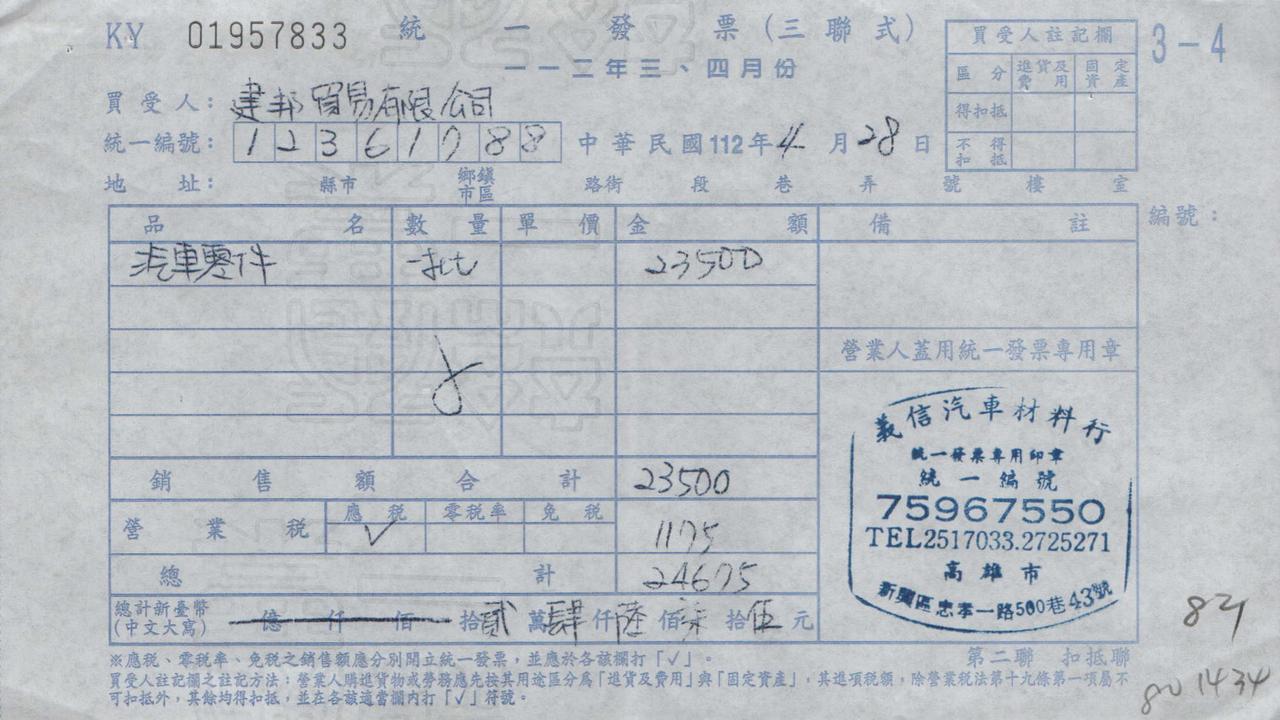 KY 01957833 統一發票(三聯式)
一一二年三、四月份
3-4
買受人註記欄
區分 進貨及費用 固定資產
得扣抵
不得扣抵
買受人: 建邦貿易有限公司
統一編號: 12361788 中華民國112年4月28日
地址: 縣市 鄉鎮市區 路街 段 巷 弄 號 樓 室
品名 數量 單價 金額 備註 編號:
汽車零件 一批 23500
營業人蓋用統一發票專用章
銷售額合計 23500
營業稅 應稅 零稅率 免稅
√ 1175
總計 24675
總計新臺幣(中文大寫) 億 仟 佰 拾貳萬肆仟陸佰柒拾伍元
義信汽車材料行
統一發票專用印章
統一編號
75967550
TEL2517033.2725271
高雄市
新興區忠孝一路500巷43號
第二聯 扣抵聯
※應稅、零稅率、免稅之銷售額應分別開立統一發票,並應於各該欄打「√」。
買受人註記欄之註記方法:營業人購進貨物或勞務應先按其用途區分為「進貨及費用」與「固定資產」,其進項稅額,除營業稅法第十九條第一項屬不
可扣抵外,其餘均得扣抵,並在各該適當欄內打「√」符號。
1434